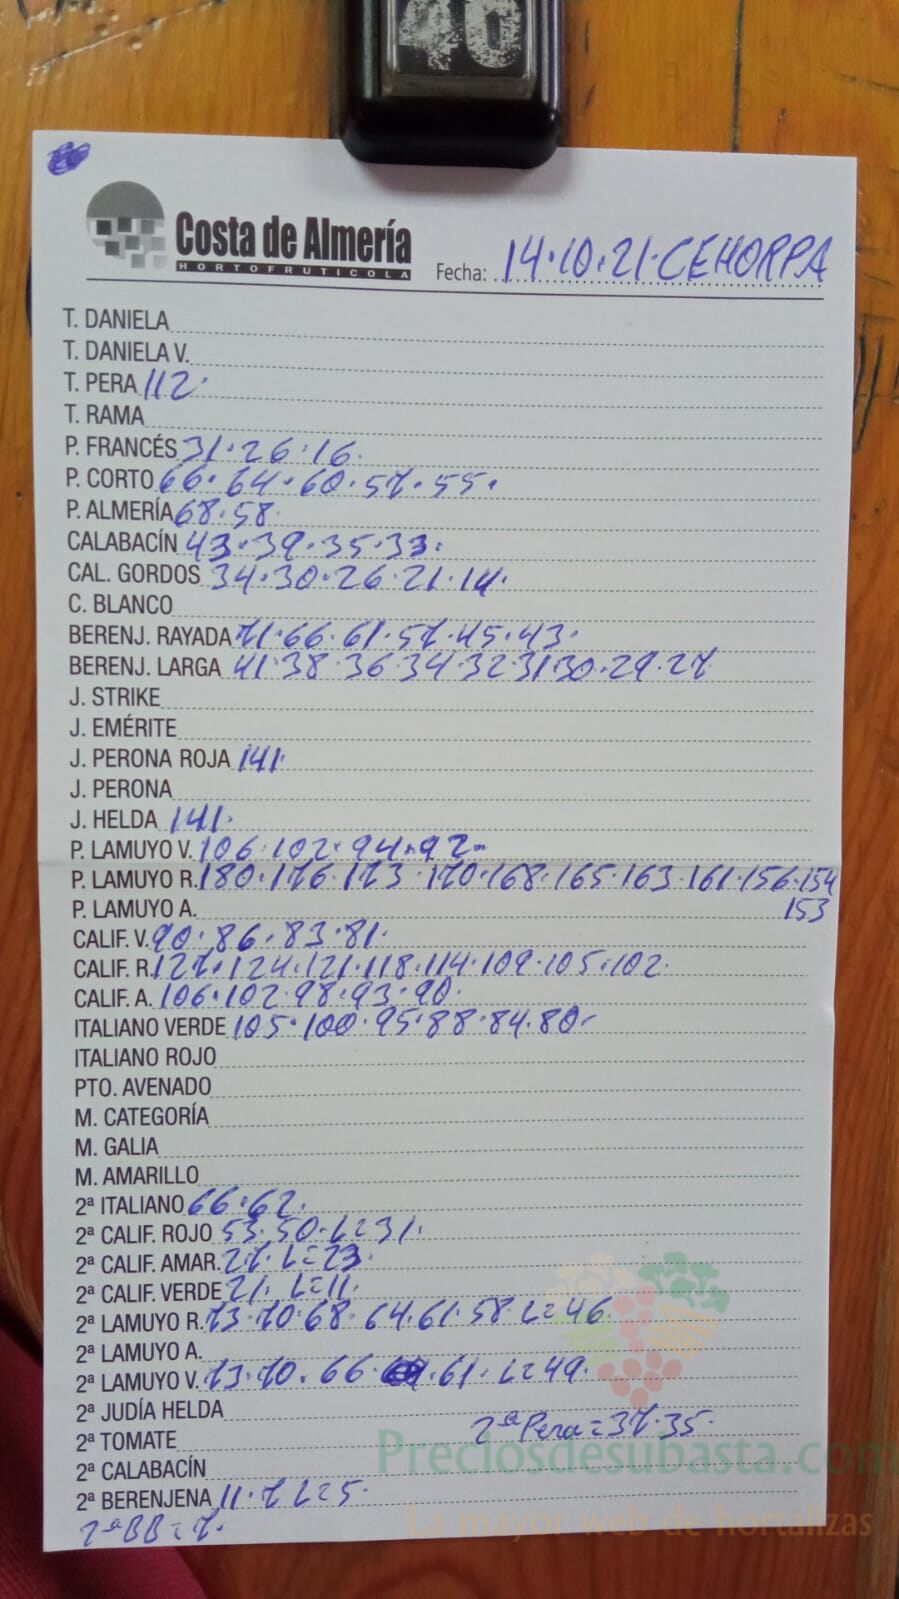 40
Costa de Almería
HORTOFRUTICOLA
Fecha: 14·10·21·CEHORPA
T. DANIELA
T. DANIELA V.
T. PERA 112·
T. RAMA
P. FRANCÉS 31·26·16·
P. CORTO 66·64·60·57·55·
P. ALMERÍA 68·58
CALABACÍN 43·39·35·33·
CAL. GORDOS 34·30·26·21·14·
C. BLANCO
BERENJ. RAYADA 71·66·61·57·45·43·
BERENJ. LARGA 41·38·36·34·32·31·30·29·27
J. STRIKE
J. EMÉRITE
J. PERONA ROJA 141·
J. PERONA
J. HELDA 141·
P. LAMUYO V. 106·102·94·92-
P. LAMUYO R. 180·176·173·170·168·165·163·161·156·154
P. LAMUYO A. 153
CALIF. V. 90·86·83·81·
CALIF. R. 127·124·121·118·114·109·105·102·
CALIF. A. 106·102·98·93·90·
ITALIANO VERDE 105·100·95·88·84·80-
ITALIANO ROJO
PTO. AVENADO
M. CATEGORÍA
M. GALIA
M. AMARILLO
2ª ITALIANO 66·62·
2ª CALIF. ROJO 53·50·L=31·
2ª CALIF. AMAR. 27·L=23·
2ª CALIF. VERDE 21·L=11·
2ª LAMUYO R. 73·70·68·64·61·58·L=46
2ª LAMUYO A.
2ª LAMUYO V. 73·70·66·64·61·L=49·
2ª JUDÍA HELDA
2ª Pera=37·35·
2ª TOMATE
Preciosdesubasta.com
2ª CALABACÍN
2ª BERENJENA 11·7 L=5·
La mayor web de hortalizas
2ªBB=7·